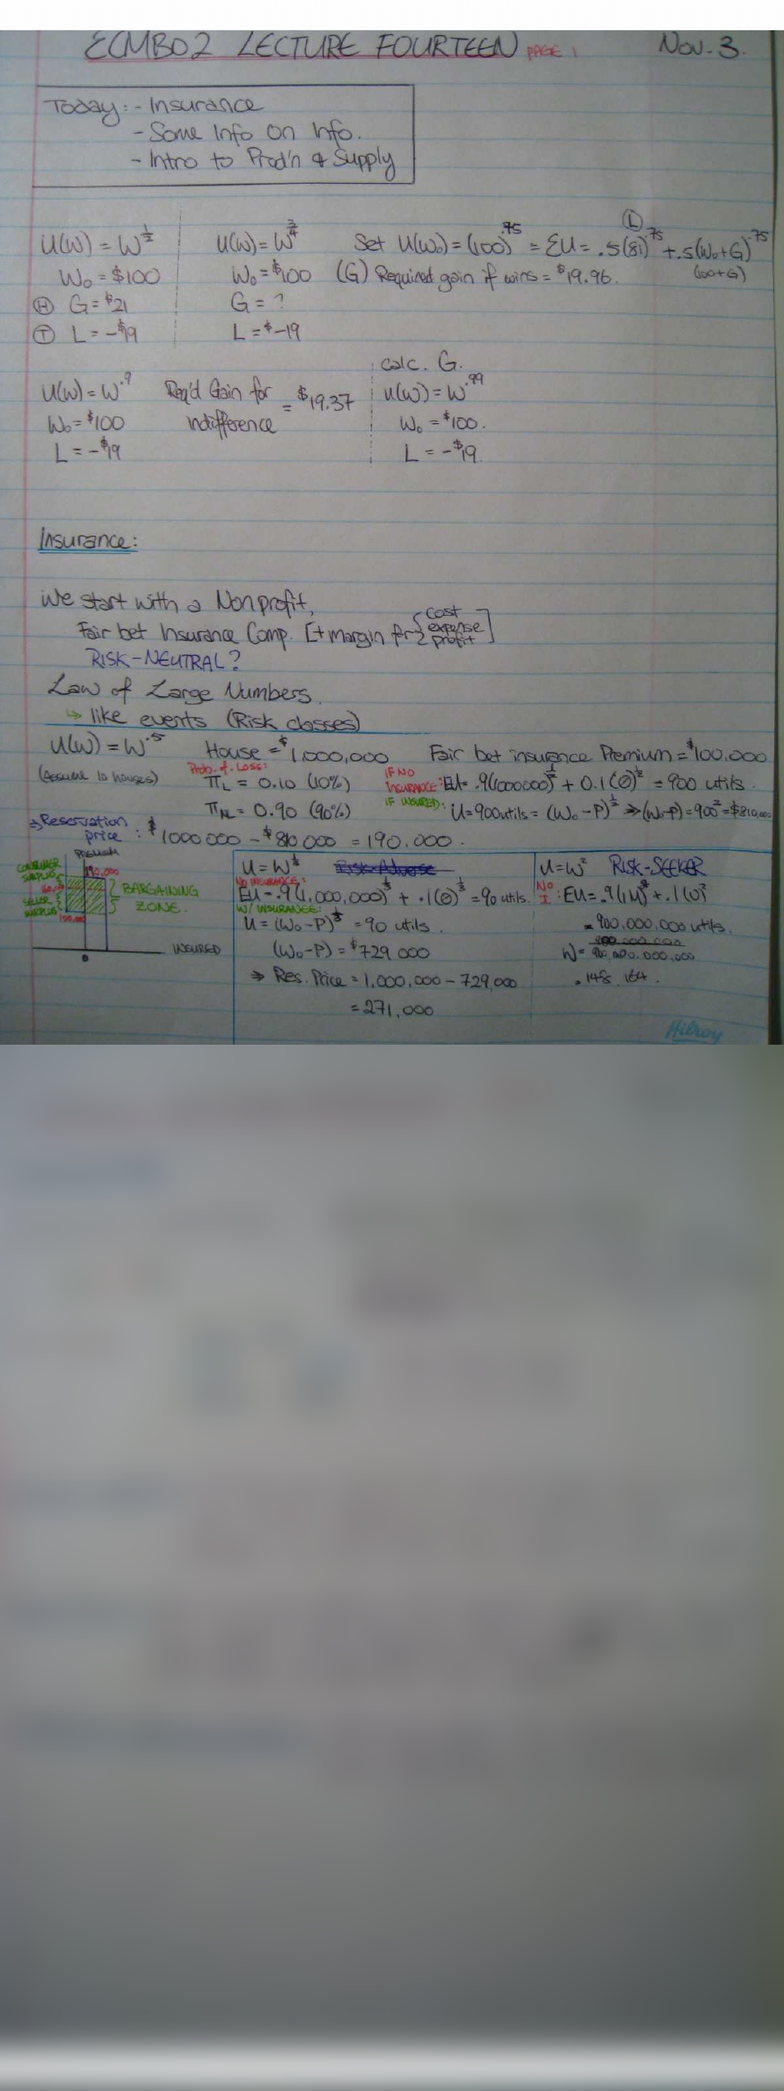 ECMB02 LECTURE FOURTEEN PAGE 1 Nov. 3.
Today: - Insurance
- Some Info on Info.
- Intro to Prod'n & Supply
U(W) = W^½
W₀ = $100
(H) G = $21
(T) L = -$19
U(W) = W^¾
W₀ = $100
G = ?
L = $-19
Set U(W₀) = (100)^.75 = ΣU = .5(81)^.75 + .5(W₀+G)^.75
(L)
(100+G)
(G) Required gain if wins = $19.96.
U(W) = W^.9
W₀ = $100
L = -$19
Req'd Gain for indifference = $19.37
calc. G.
U(W) = W^.99
W₀ = $100.
L = -$19.
Insurance:
We start with a Nonprofit,
Fair bet Insurance Comp. [+ margin for { cost expense profit ]
RISK-NEUTRAL?
Law of Large Numbers.
↳ like events (Risk classes)
U(W) = W^.5 House = $1,000,000 Fair bet insurance Premium = $100,000
(Assume 10 houses) Prob. of Loss: Π_L = 0.10 (10%) IF NO INSURANCE: EU = .9(1000000)^½ + 0.1(0)^½ = 900 utils.
Π_NL = 0.90 (90%) IF INSURED: U = 900utils = (W₀-P)^½ ⇒ (W₀-P) = 900² = $810,000
⇒ Reservation price : $1000 000 - $810 000 = 190,000.
PREMIUM
CONSUMER SURPLUS
190,000
SELLER SURPLUS
100,000
BARGAINING ZONE.
INSURED
0
U = W^⅓ Risk-Adverse
NO INSURANCE:
EU = .9(1,000,000)^⅓ + .1(0)^⅓ = 90 utils.
W/ INSURANCE:
U = (W₀-P)^⅓ = 90 utils.
(W₀-P) = $729 000
⇒ Res. Price = 1,000,000 - 729,000
= 271,000
U = W² RISK-SEEKER
No I. : EU = .9(1M)² + .1(0)²
= 900,000,000 utils.
.148 164.
Hilroy